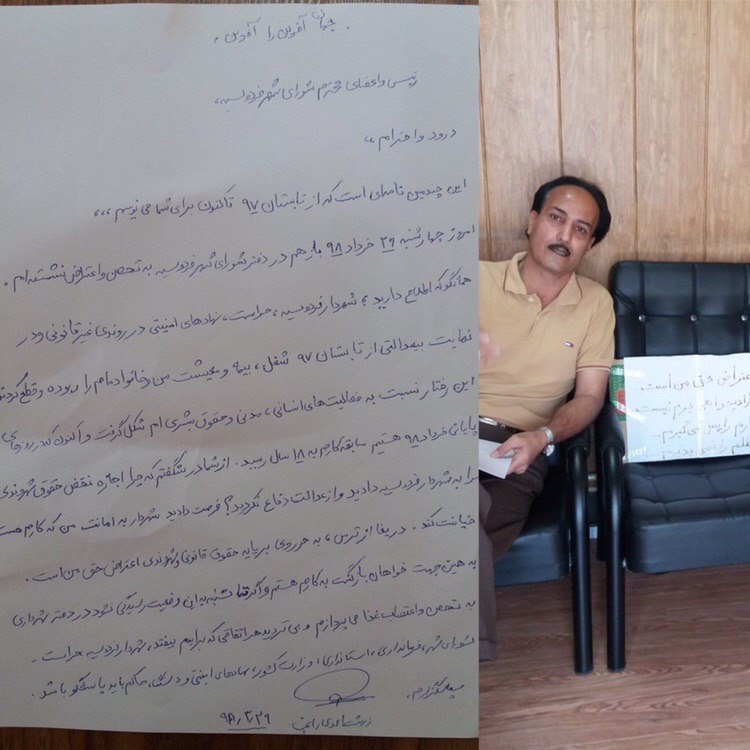 جهان آفرین را آفرین.
رئیس و اعضای محترم شورای شهر فردوسیه،
درود و احترام،،
این چندمین نامه‌ای است که از تابستان ۹۷ تاکنون برای شما می‌نویسم،،،
امروز چهارشنبه ۲۹ خرداد ۹۸ باز هم در دفتر شورای شهر فردوسیه به تحصن و اعتراض نشسته‌ام.
همانگونه که اطلاع دارید؛ شهردار فردوسیه، حراست، نهادهای امنیتی در روندی غیرقانونی و در
نهایت بیعدالتی از تابستان ۹۷ شغل، بیمه و معیشت من و خانواده‌ام را ربوده و قطع کردند
این رفتار نسبت به فعالیت‌های انسانی، مدنی و حقوق بشری ام شکل گرفت و اکنون که در روزهای
پایانی خرداد ۹۸ هستیم سابقه کارم به ۱۸ سال رسید. از شما در شگفتم که چرا اجازه نقض حقوق شهروندی
را به شهردار فردوسیه دادید و از عدالت دفاع نکردید؟ فرصت دادید شهردار به امانت من که کارم هست
خیانت کند. دریغا از ترس، به هر روی بر پایه حقوق قانونی و شهروندی اعتراض حق من است.
به همین جهت خواهان بازگشت به کارم هستم و اگر تا شنبه به این وضعیت رسیدگی نشود در دفتر شهرداری
به تحصن و اعتصاب غذا می‌پردازم و بی تردید هر اتفاقی که برایم بیفتد، شهردار فردوسیه، حراست،
شورای شهر، فرمانداری، استانداری، وزارت کشور، نهادهای امنیتی و دستگاه حاکم باید پاسخگو باشد.
سپاسگزارم.
۹۸/۳/۲۹
اعتراض حق من است.
جرم نیست.